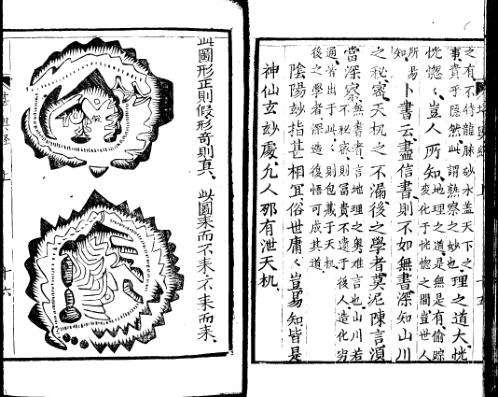 之有不待龍脉砂水蓋天下之
事貴乎隱然此謂熟察之妙也
理之道大恍
恍惚〻豈人所知
地理之道是無是有偷踪
変化于恍惚之間豈世人
所易
知
卜書云盡信書則不如無書深知山川
之秘寳天机之不漏後之學者莫泥陳言湏
當深察
無書者言地理之奥难言也山川若
不秘密則冨貴不遺于後人造化穷
通皆出于此〻則包藏于天机
後之學者深造後悟可成其道
陰陽玅指甚相宜俗世庸〻豈易知皆是
神仙玄玅處凢人那有泄天机
十五
此圖形正則假形奇則真
此圖来而不来不来而来
十六